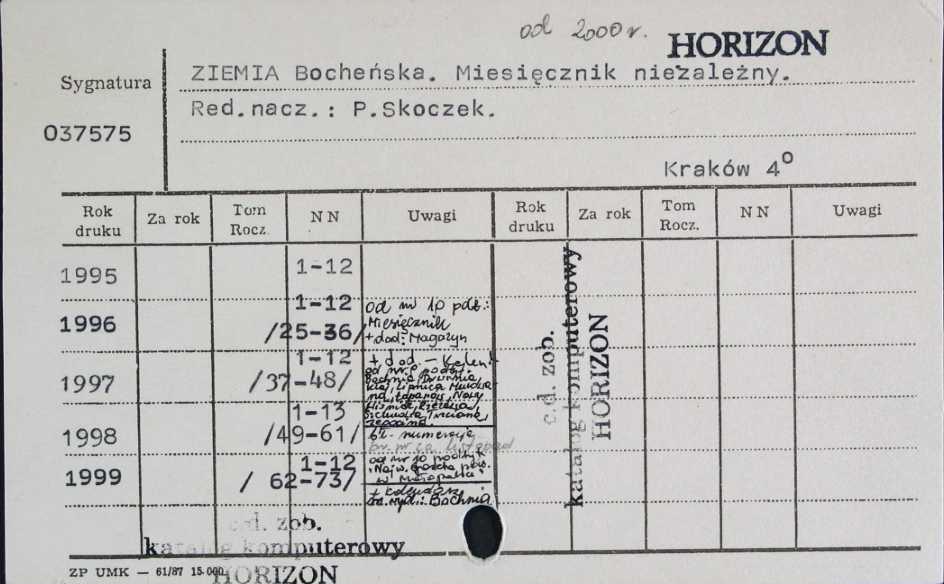 od 2000 r. HORIZON
Sygnatura
ZIEMIA Bocheńska. Miesięcznik niezależny.
Red.nacz.: P.Skoczek.
037575
Kraków 4°
Rok druku Za rok Tom Rocz. NN Uwagi Rok druku Za rok Tom Rocz. NN Uwagi
1995 1-12
1996 1-12 /25-36/ od nr 10 podt.:
Miesięcznik
+ dod: Magazyn
1997 1-12 /37-48/ + dod - 
od nr podt.
Bochnia, Drwinia,
Lipnica
Łapanów, Nowy
Wiśnicz, Rzezawa,
Trzciana,
Żegocina.
1998 1-13 /49-61/ numeracja
listopad
1999 1-12 / 62-73/ od nr 10 podtyt.
w Małopolsce
+ Kalendarz
Bochnia
c.d. zob.
katalog komputerowy
HORIZON
c.d. zob.
katalog komputerowy
HORIZON
ZP UMK — 61/87 15.000